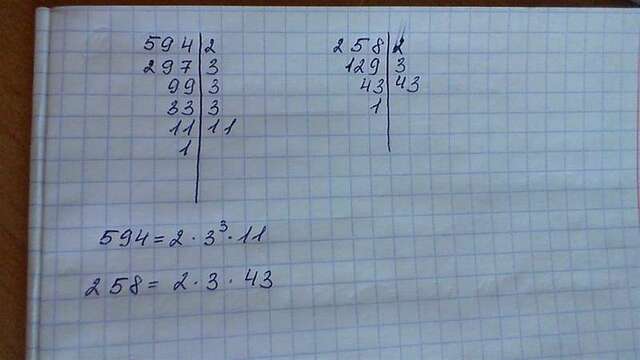 594 | 2
297 | 3
99 | 3
33 | 3
11 | 11
1
258 | 2
129 | 3
43 | 43
1
594 = 2 · 3³ · 11
258 = 2 · 3 · 43